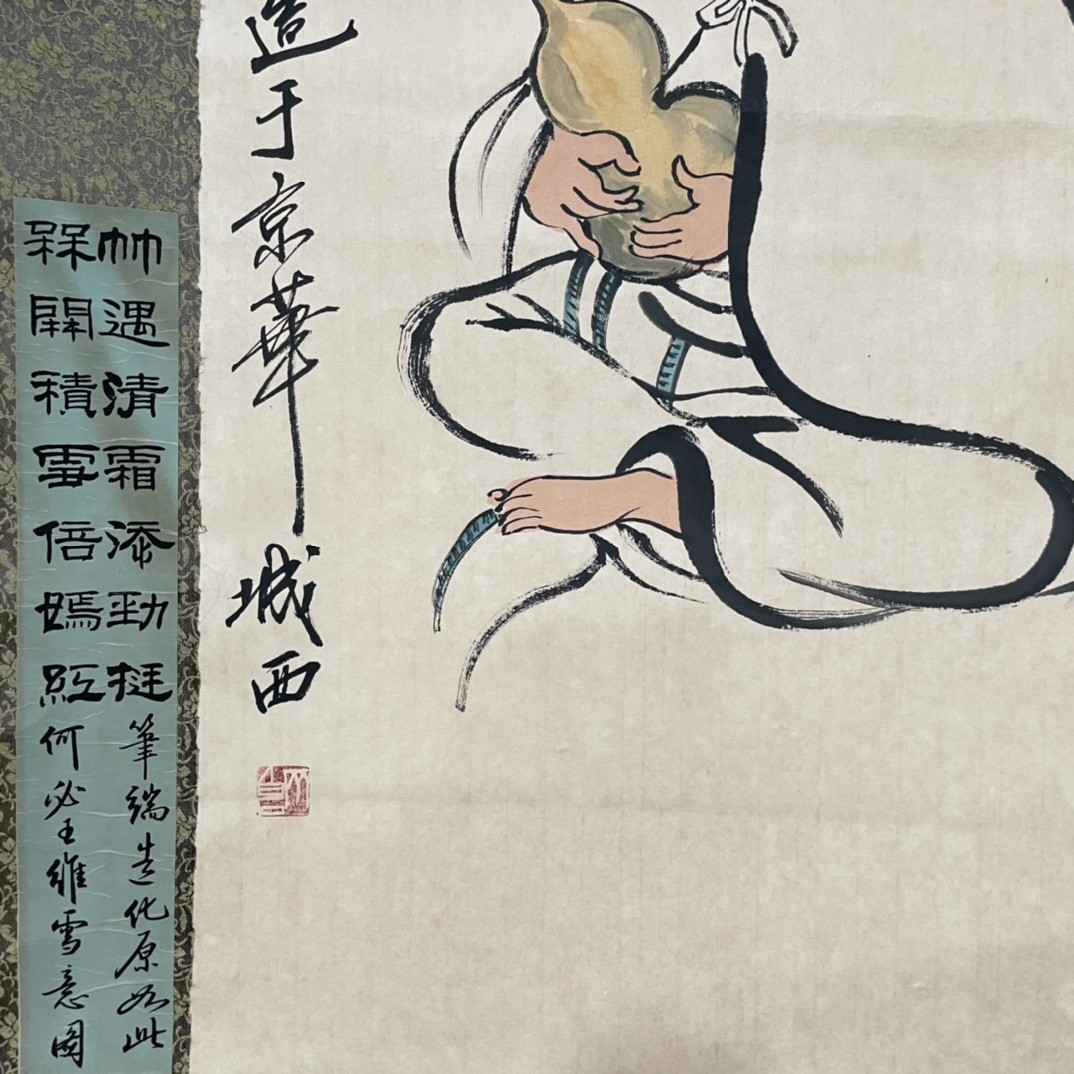 造于京華城西
竹遇清霜添勁挺筆端造化原如此
槑開積雪倍嫣紅何必王維雪意圖